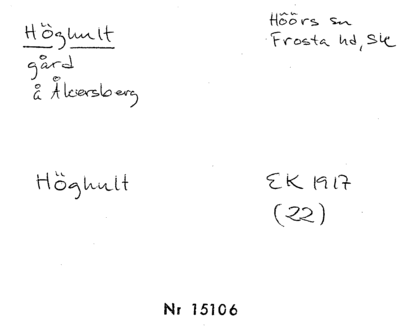 Höghult
Höörs sn
Frosta hd, Sk
gård
å Åkersberg
Höghult
EK 1917
(22)
Nr 15106